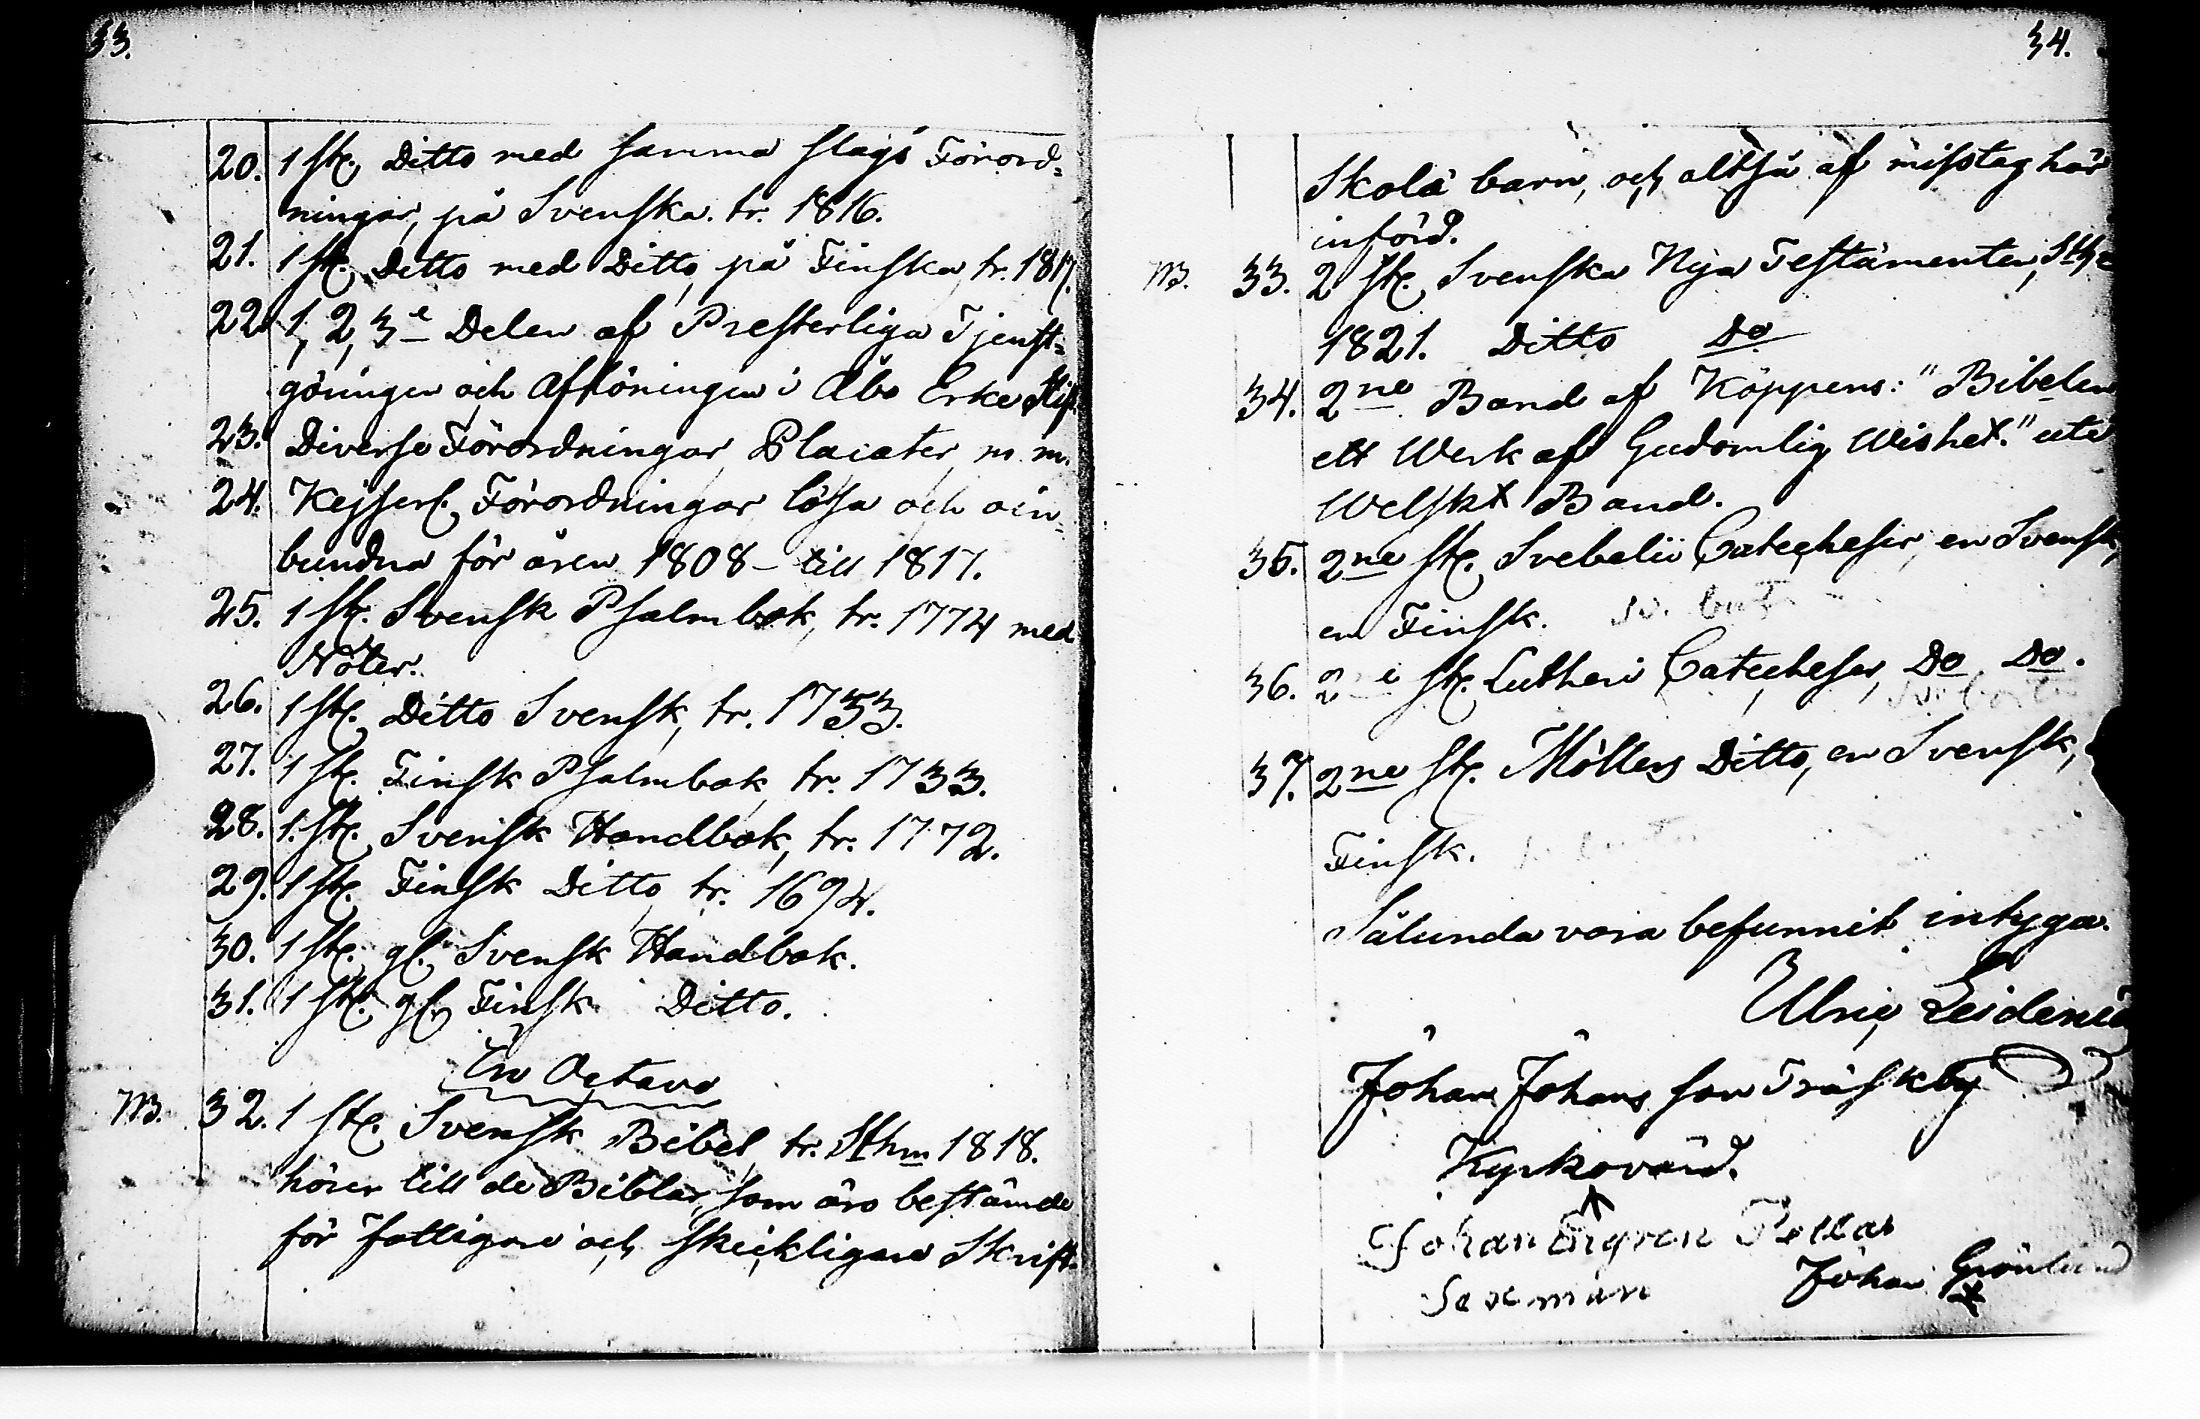 33.
20. 1 st. Ditto med samma slags Förord=
ningar, på Svenska. tr. 1816.
21. 1 st. Ditto med Ditto, på Finska, tr. 1817.
22. 1, 2, 3e Delen af Presterliga Tjenst=
göringen och Aflöningen i Åbo Erke Stift.
23. Diverse Förordningar, Placater, m. m.
24. Kejserl. Förordningar lösa och oin=
bundna för åren 1808 - till 1817.
25. 1 st. Svensk Psalmbok, tr. 1774 med
Noter.
26. 1 st. Ditto Svensk, tr. 1753.
27. 1 st. Finsk Psalmbok, tr. 1733.
28. 1. st. Svensk Handbok, tr. 1772.
29. 1 st. Finsk Ditto, tr. 1694.
30. 1 st. gl. Svensk Handbok.
31. 1 st. gl. Finsk Ditto.
In Octavo
NB. 32. 1 st. Svensk Bibel, tr. Sthm 1818.
hörer till de Biblar, som äro bestämde
för fattigare och skickligare Skrift-
34.
Skola barn, och altså af misstag här
införd.
NB. 33. 2 st. Svenska Nya Testamenten,
1821. Ditto Do
34. 2ne Band af Köppens: "Bibelen
ett Werk af Gudomlig Wishet." uti
Welskt Band.
35. 2ne st. Svebelii Catecheser, en Svensk,
en Finsk.
36. 2e st. Lutheri Catecheser, Do Do.
37. 2ne st. Möllers Ditto, en Svensk,
Finsk.
Sålunda vara befunnit intyga.
Ulric Leidenius
Johan Johans son Träskby
Kyrkovärd.
Johan
Sexmän
Johan Grönlund